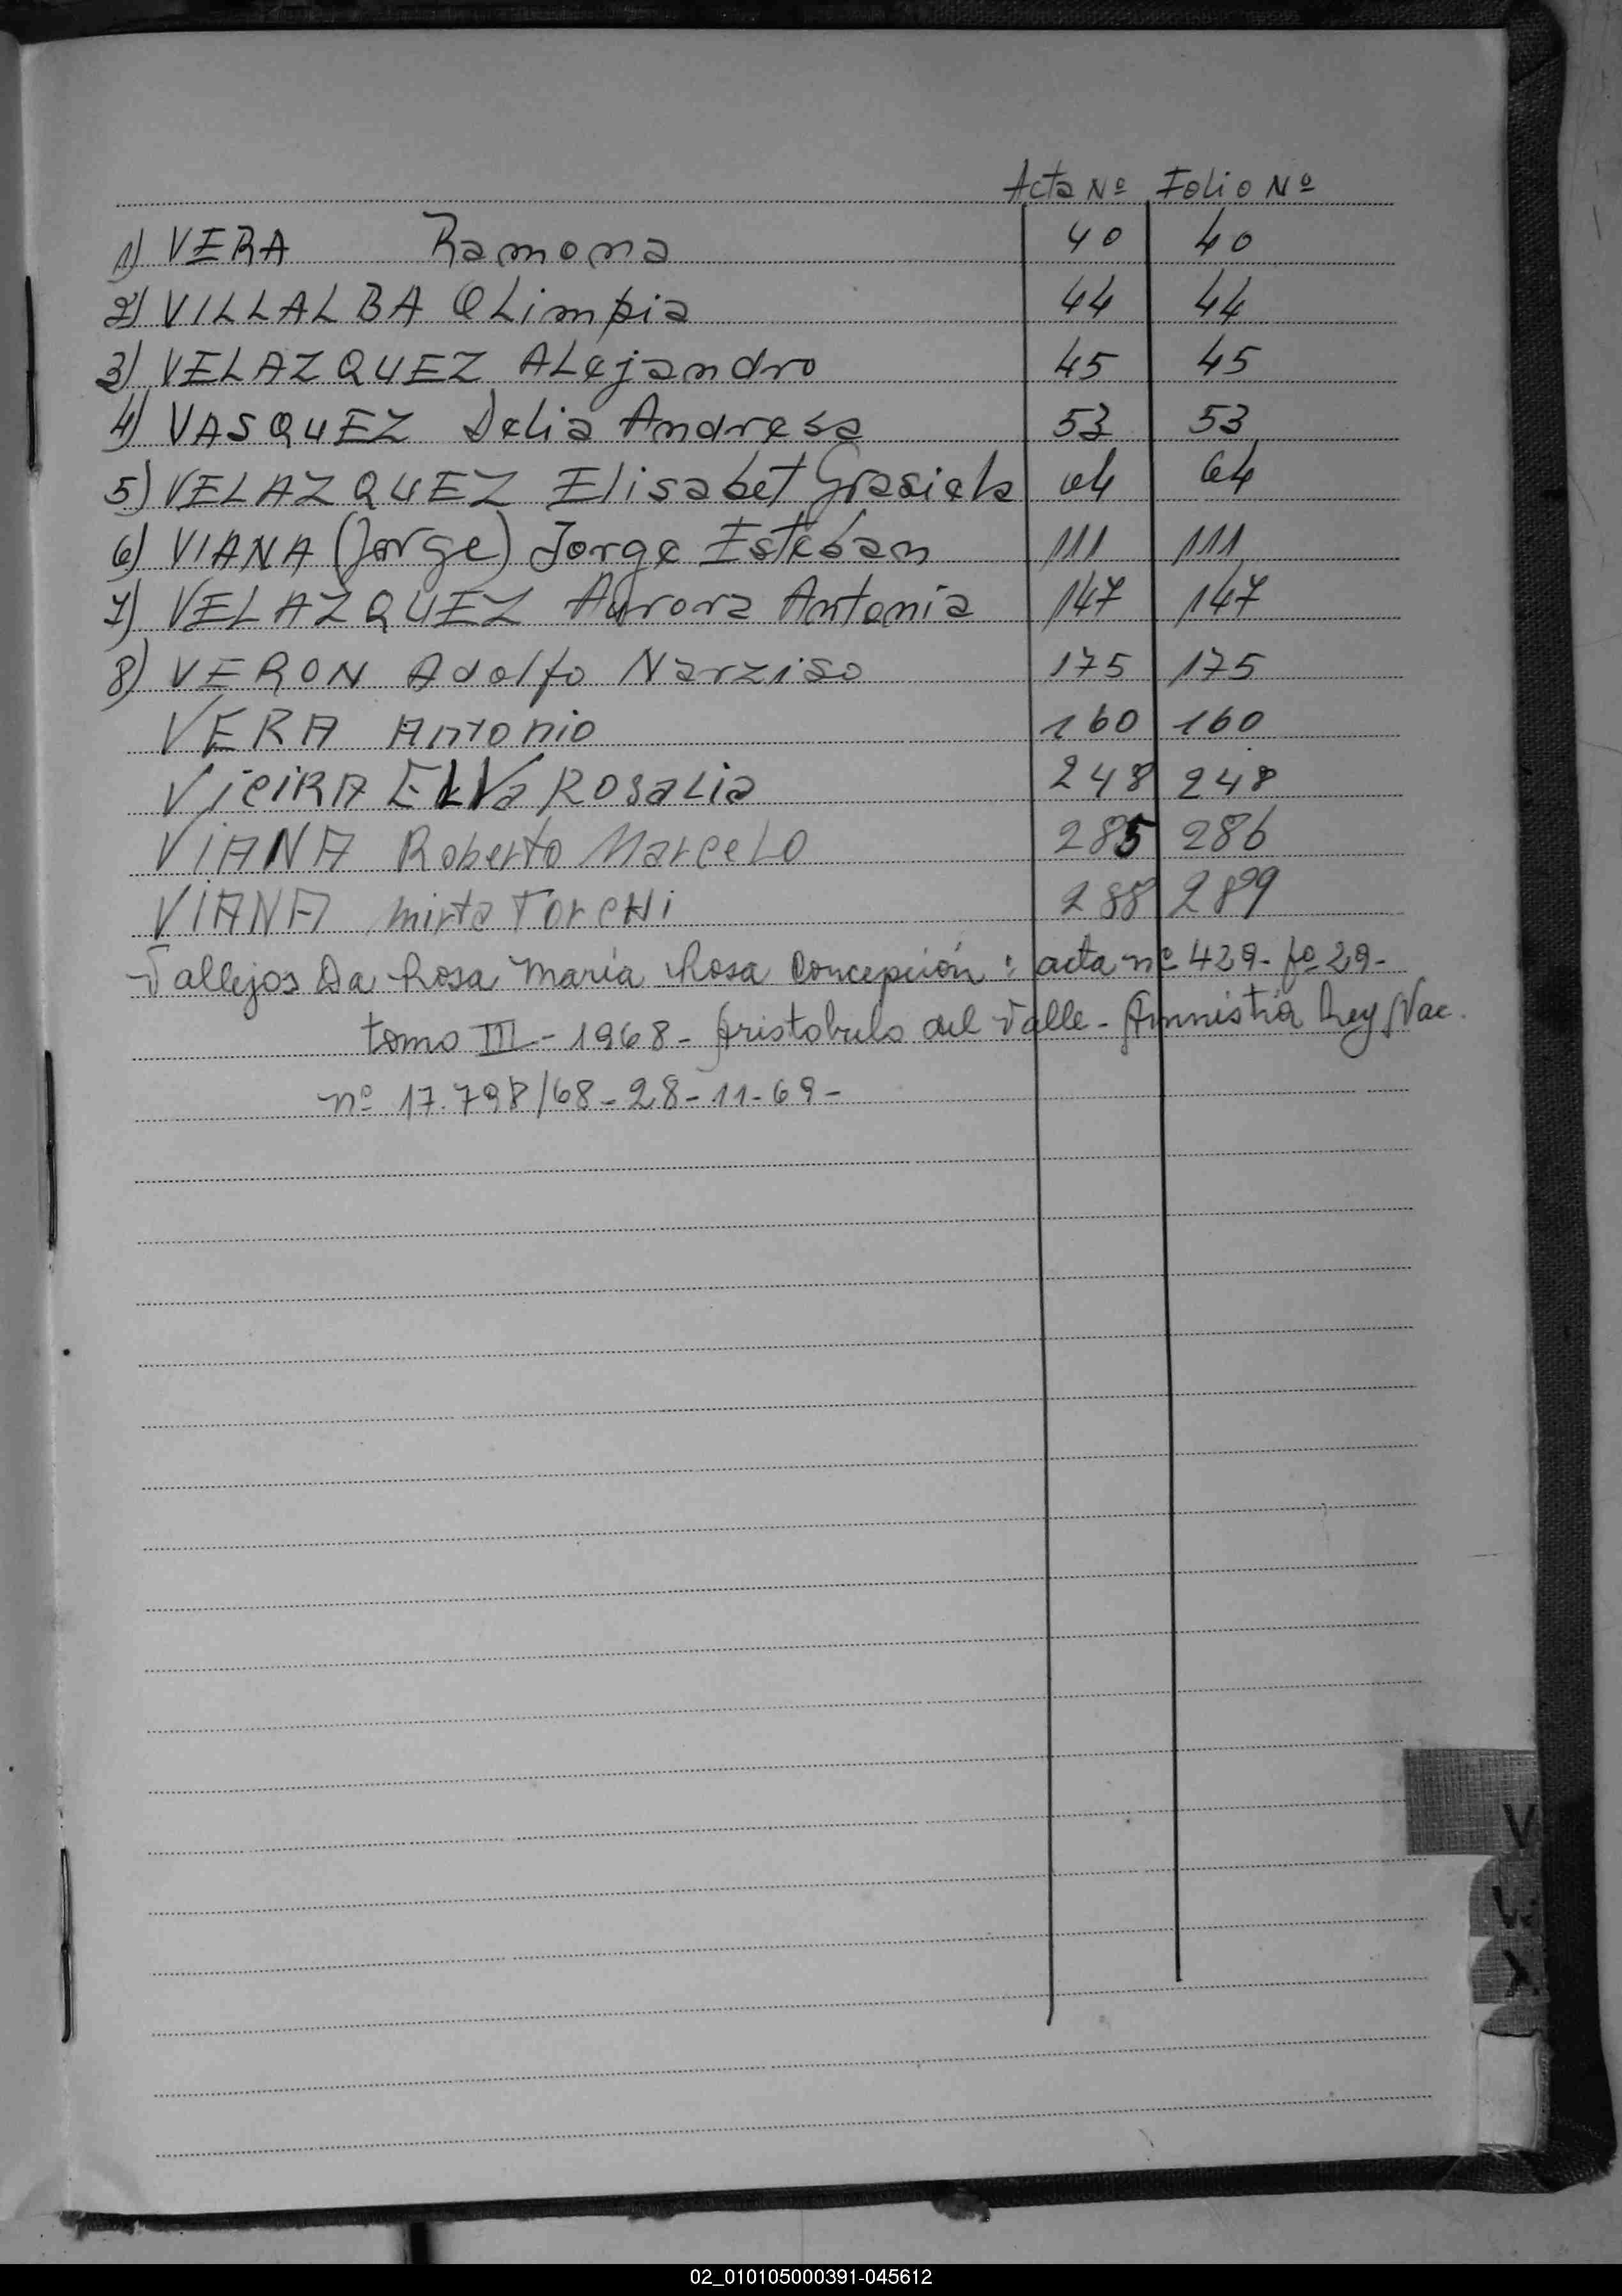 Acta Nº Folio Nº
1) VERA Ramona 40 40
2) VILLALBA OLimpia 44 44
3) VELAZQUEZ ALejandro 45 45
4) VASQUEZ Delia Andresa 53 53
5) VELAZQUEZ Elisabet Grasiela 64 64
6) VIANA (Jorge) Jorge Esteban 111 111
7) VELAZQUEZ Aurora Antonia 147 147
8) VERON Adolfo Narziso 175 175
VERA Antonio 160 160
VieiRA ELVa ROsaLia 248 248
ViANA Roberto MarceLO 285 286
ViANA mirta 288 289
Vallejos Da Rosa María Rosa Concepción: acta nº 429- fº 29-
tomo III - 1968 - Aristobulo del Valle - Amnistía Ley Nac.
nº 17.798/68 - 28-11-69-
V
X
02_010105000391-045612